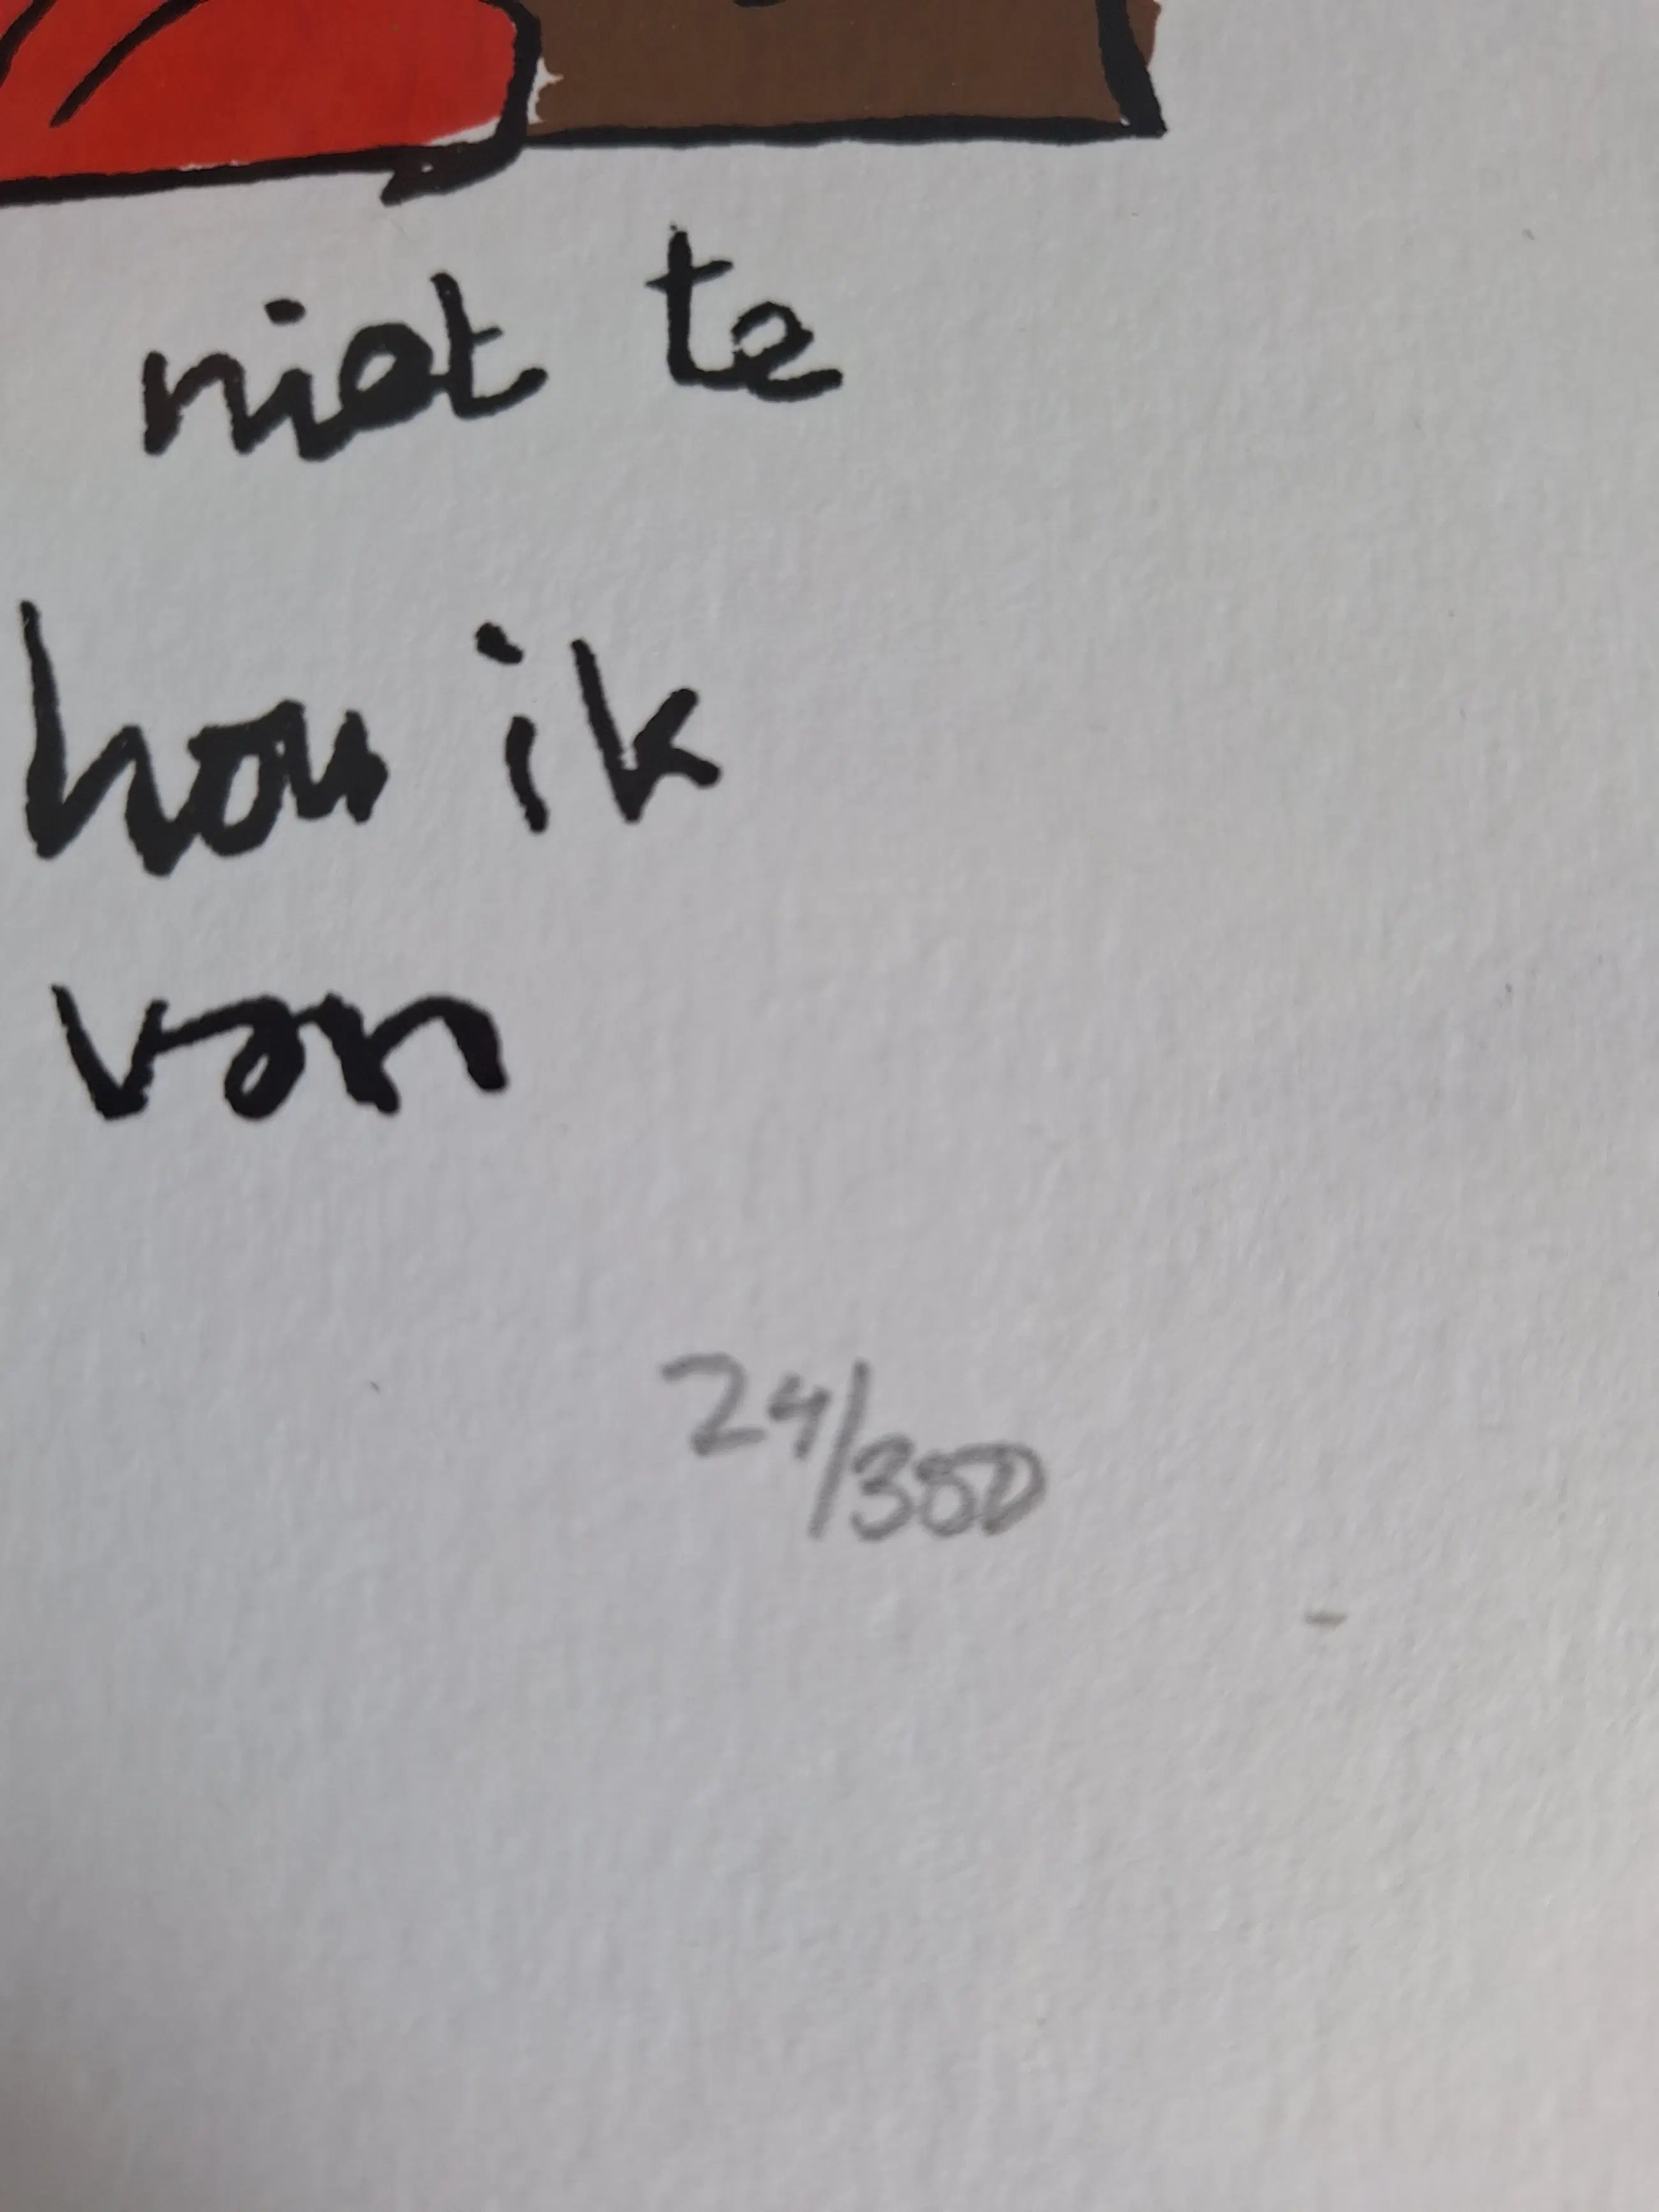 niet te
hou ik
van
24/350